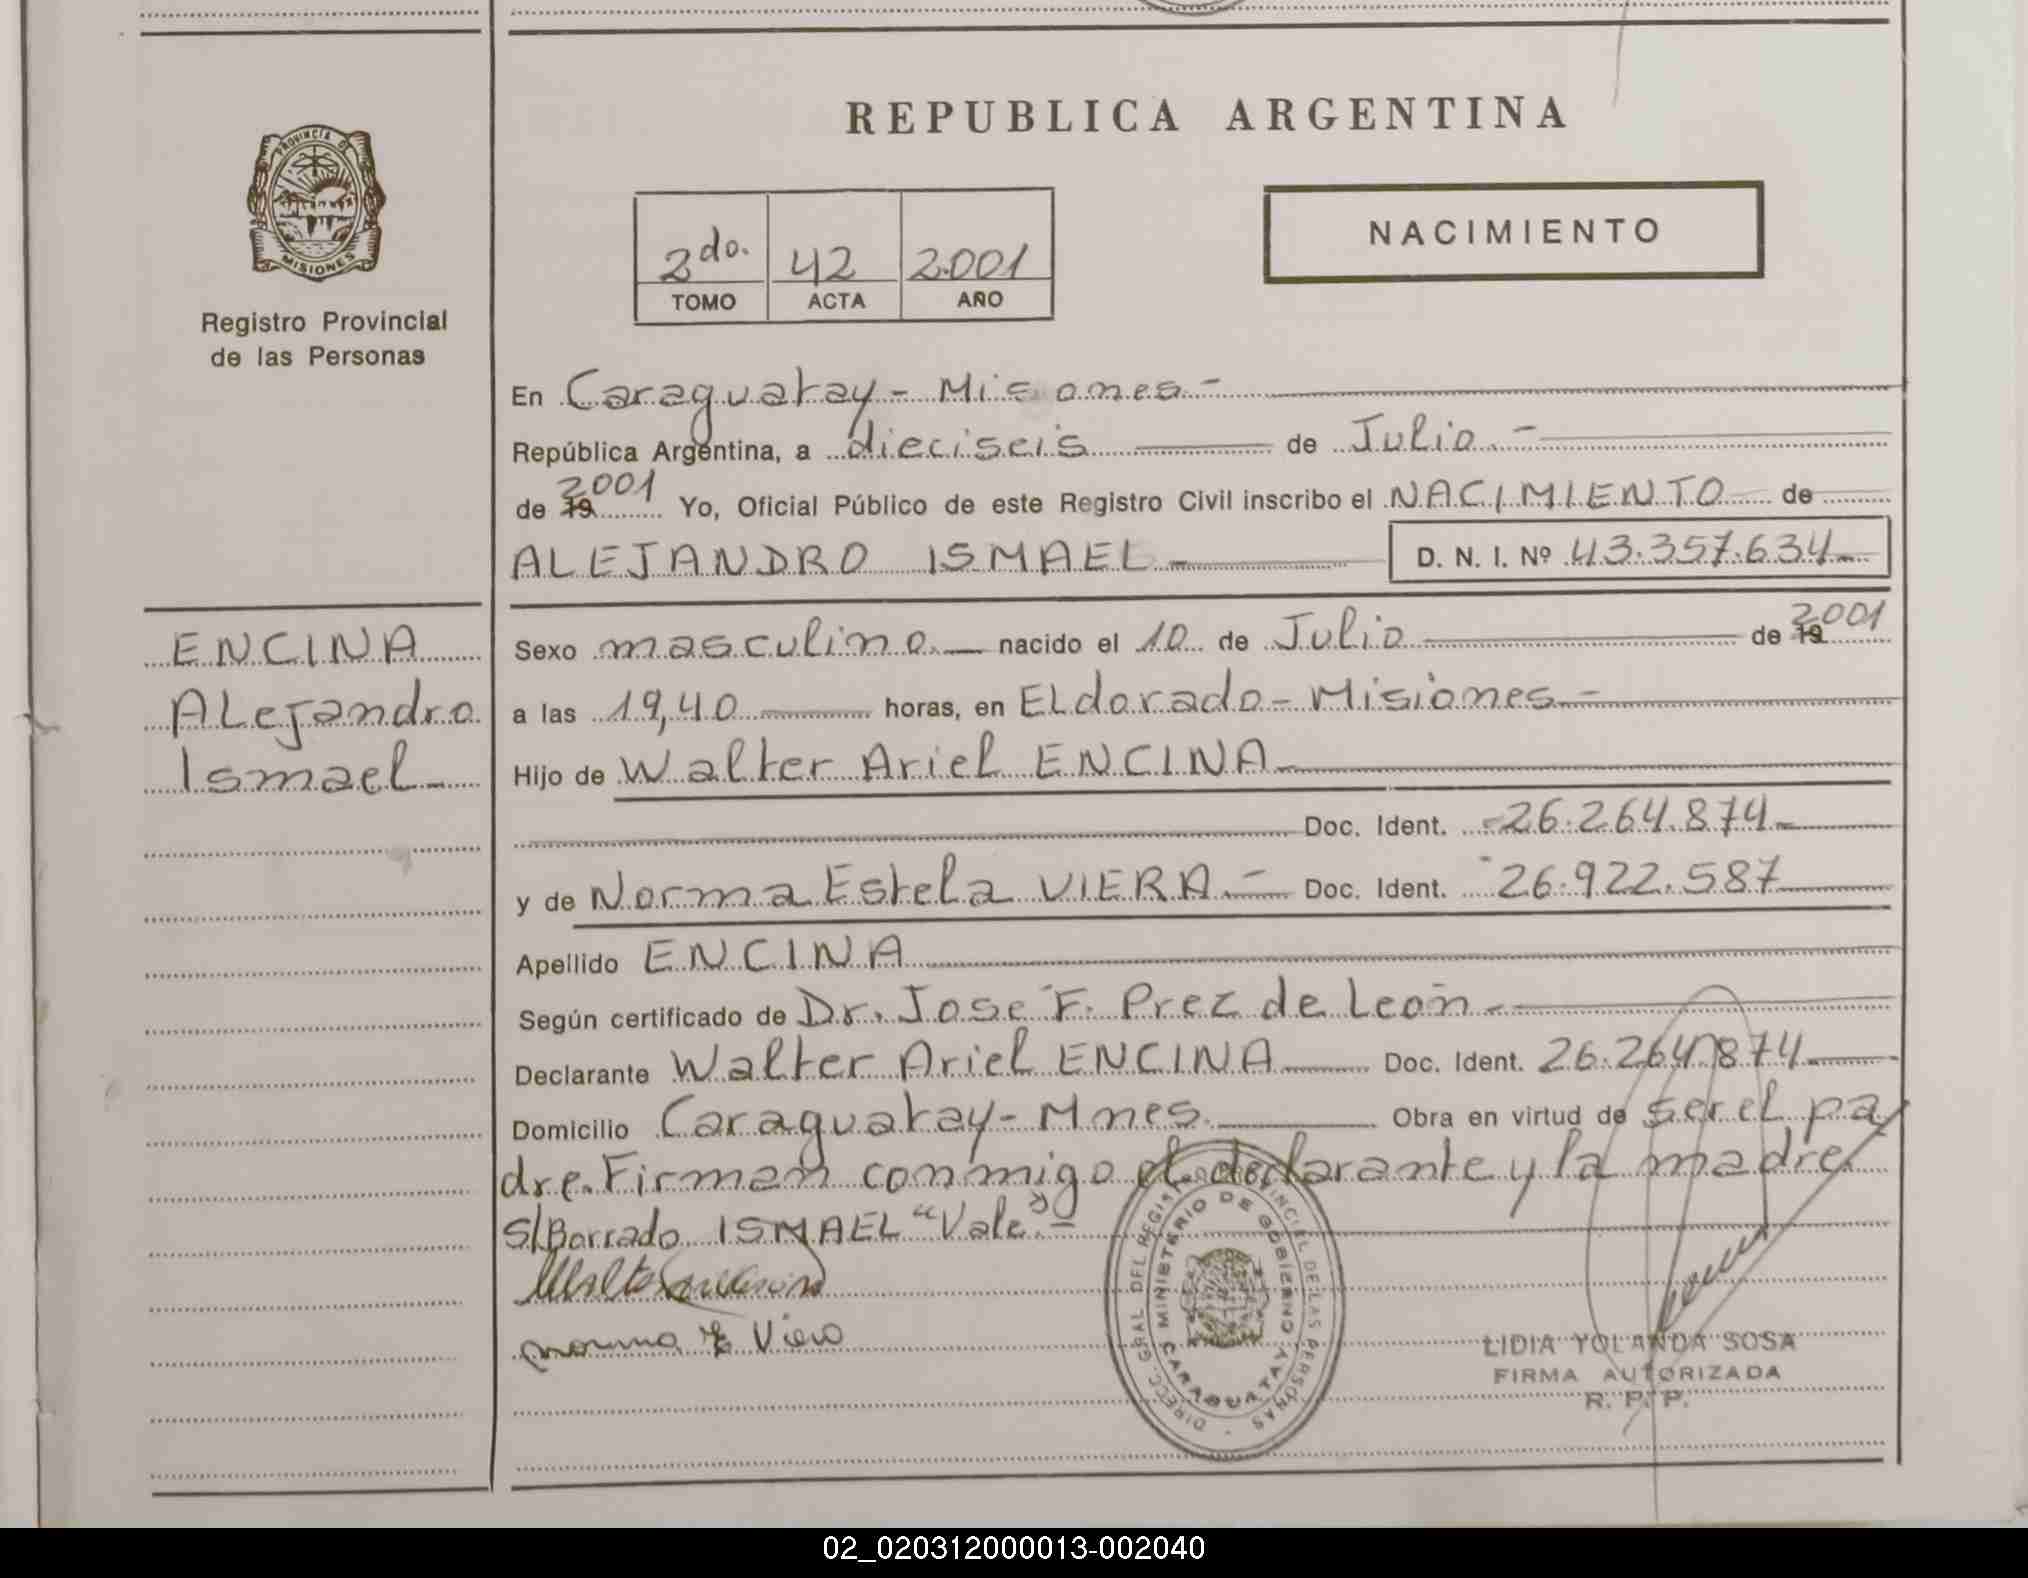 REPUBLICA ARGENTINA
PROVINCIA DE
MISIONES
Registro Provincial
de las Personas
2do. 42 2.001
TOMO ACTA AÑO
NACIMIENTO
En Caraguatay - Misiones -
República Argentina, a dieciseis de Julio. -
de 19 2001 Yo, Oficial Público de este Registro Civil inscribo el NACIMIENTO de
ALEJANDRO ISMAEL - D. N. I. Nº 43.357.634-
ENCINA
Alejandro
Ismael -
Sexo masculino. nacido el 10 de Julio de 19 2001
a las 19,40 horas, en Eldorado - Misiones -
Hijo de Walter Ariel ENCINA -
Doc. Ident. -26.264.874-
y de Norma Estela VIERA. - Doc. Ident. 26.922.587
Apellido ENCINA
Según certificado de Dr. José F. Prez de León -
Declarante Walter Ariel ENCINA Doc. Ident. 26.264.874
Domicilio Caraguatay - Mnes. Obra en virtud de ser el pa
dre. Firman conmigo el declarante y la madre.
S/Borrado ISMAEL "Vale" -
Norma E Viera
DIRECC. GRAL DEL REGISTRO PROVINCIAL DE LAS PERSONAS
MINISTERIO DE GOBIERNO
CARAGUATAY
LIDIA YOLANDA SOSA
FIRMA AUTORIZADA
R. P. P.
02_020312000013-002040